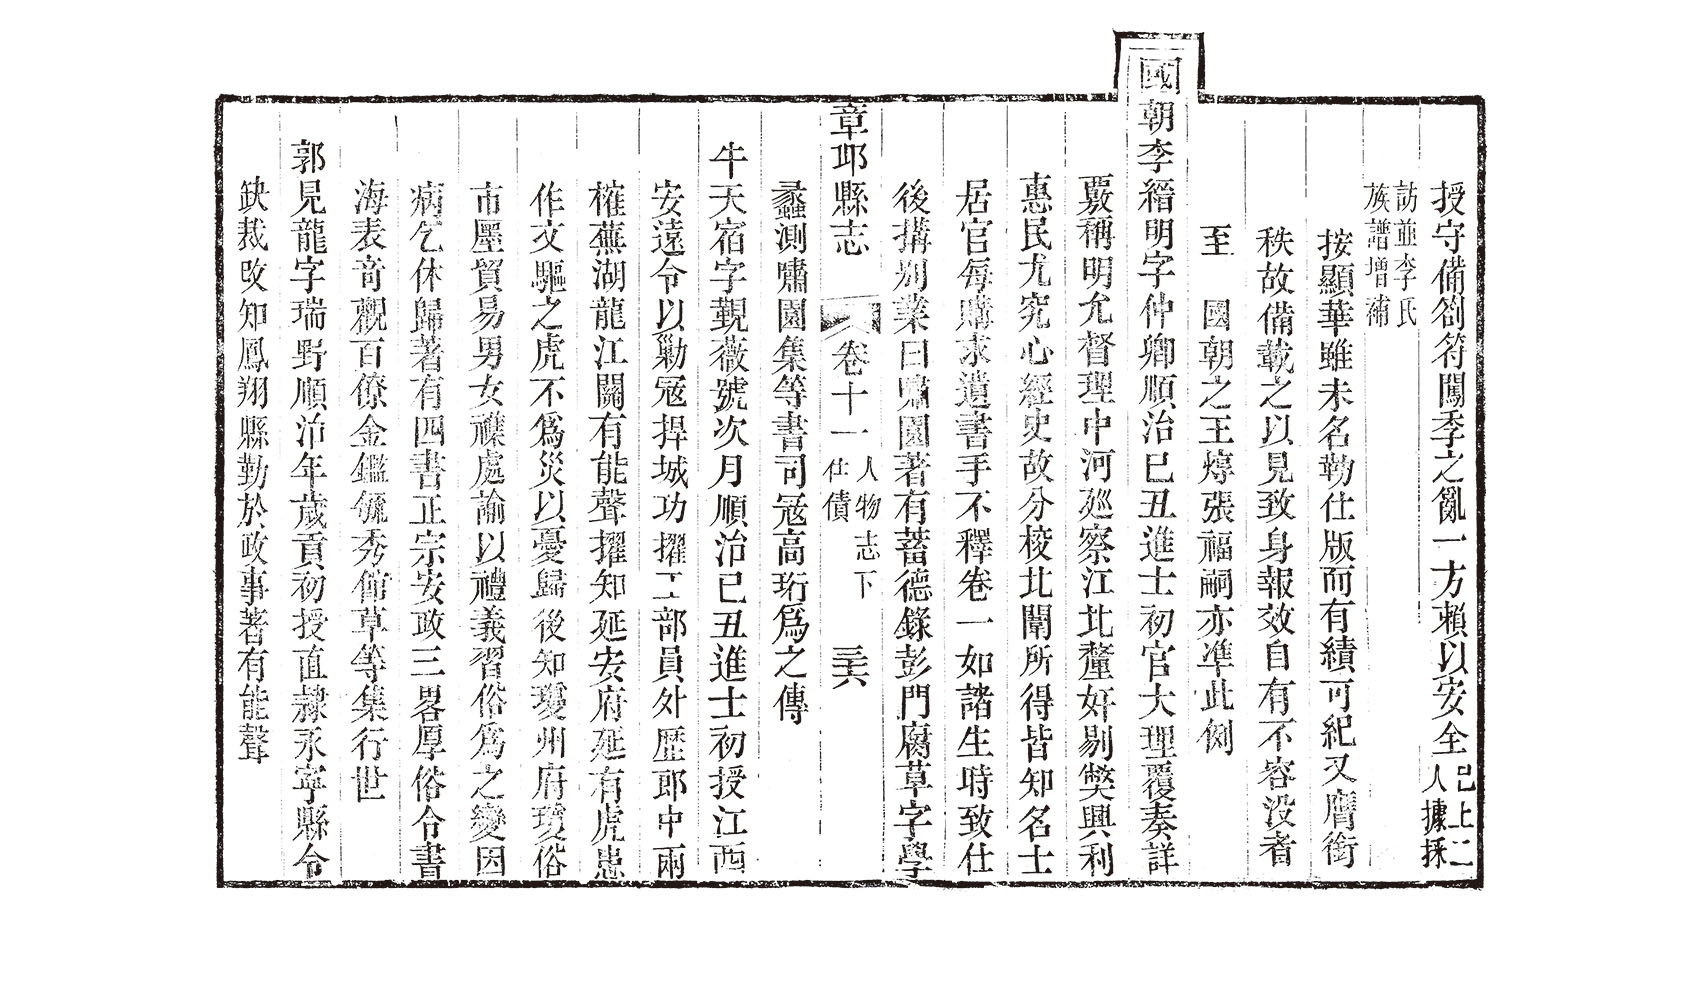 授守備劄符闖季之亂一方賴以安全已上二人據採
訪並李氏族譜增補
按顯華雖未名勒仕版而有績可紀又膺銜
秩故備載之以見致身報效自有不容没者
至　國朝之王焞張福嗣亦準此例
國朝李縉明字仲卿順治己丑進士初官大理覆奏詳
覈稱明允督理中河廵察江北釐奸剔獘興利
惠民尤究心經史故分校北闈所得皆知名士
居官每購求遺書手不釋卷一如諸生時致仕
後搆别業曰嘯園著有蓄德錄彭門腐草字學
章邱縣志　卷十一　人物志下　仕績　三六
蠡測嘯園集等書司寇高珩爲之傳
牛天宿字觐薇號次月順治己丑進士初授江西
安遠令以勦寇捍城功擢工部員外歷郎中兩
榷蕪湖龍江關有能聲擢知延安府延有虎患
作文驅之虎不爲災以憂歸後知瓊州府瓊俗
市廛貿易男女襍處諭以禮義習俗爲之變因
病乞休歸著有四書正宗安政三畧厚俗令書
海表奇觀百僚金鑑毓秀館草等集行世
郭見龍字瑞野順治年歲貢初授直隷永寧縣令
缺裁改知鳳翔縣勤於政事著有能聲